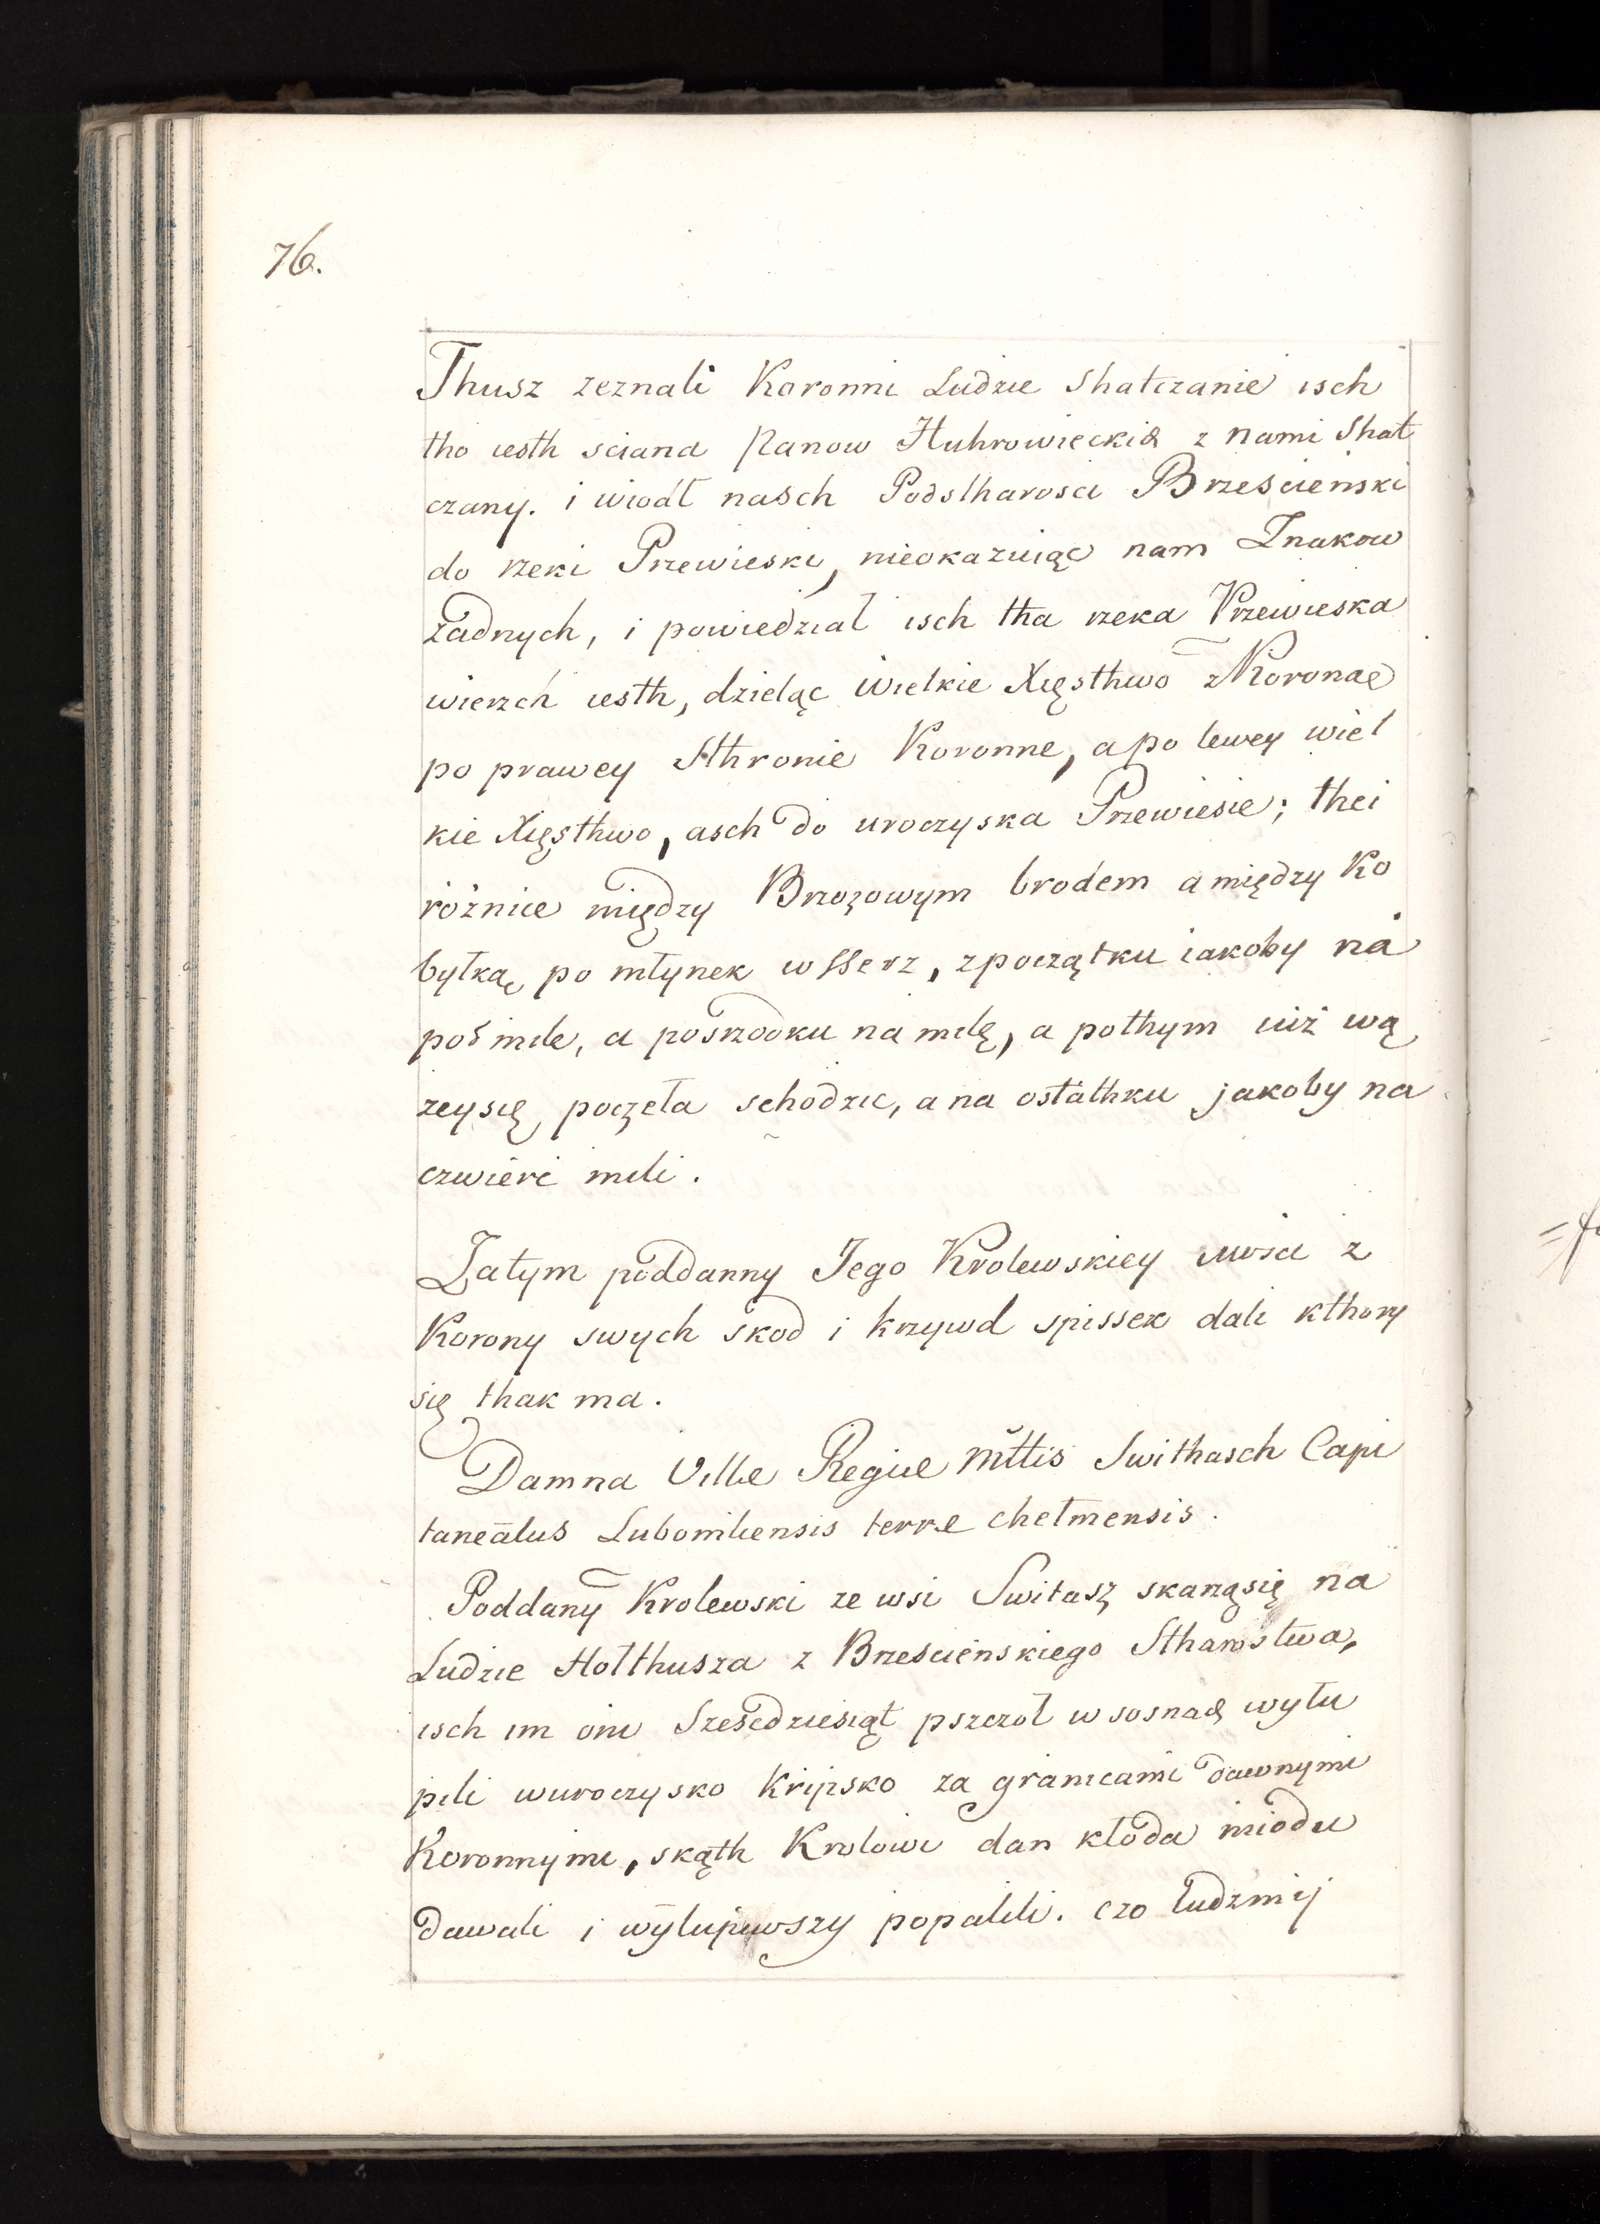 76.
Thusz zeznali Koronni Ludzie Shatczanie isch
tho iesth sciana Panow Huhrowieckich z nami Shat
czany. i wiodł nasch Podstharosci Brzescienski
do rzeki Przewieski, nieokazuiąc nam Znakow
żadnych, i powiedział isch tha rzeka Przewieska
wierzch iesth, dzieląc Wielkie Xięsthwo z Koronae
po prawey Sthronie Koronne, a po lewey wiel
kie Xięsthwo, asch do uroczyska Przewiesie; thei
różnice między Brzozowym brodem a między Ko
byłką po młynek wsserz, zpoczątku iakoby na
poł mile, a posrzodku na milę, a pothym iuż wą
zey się poczeła schodzic, a na ostathku jakoby na
czwierc mili.
Zatym poddanny Jego Krolewskiey Mosci z
Korony swych skod i krzywd spissek dali kthory
się thak ma.
Damna Villæ Regiæ Mttis Swithasch Capi
taneatus Lubomliensis terræ chełmensis.
Poddany Krolewski ze wsi Switasz skarzą się na
Ludzie Hołthusza z Brzescienskiego Stharostwa,
isch im oni Sześcdziesiąt pszczoł w sosnach wyłu
pili wuroczysko Kripsko za granicami dawnymi
Koronnymi, skąth Krolowi dan kłoda miodu
dawali i wyłupiwszy popalili. czo ludzmij